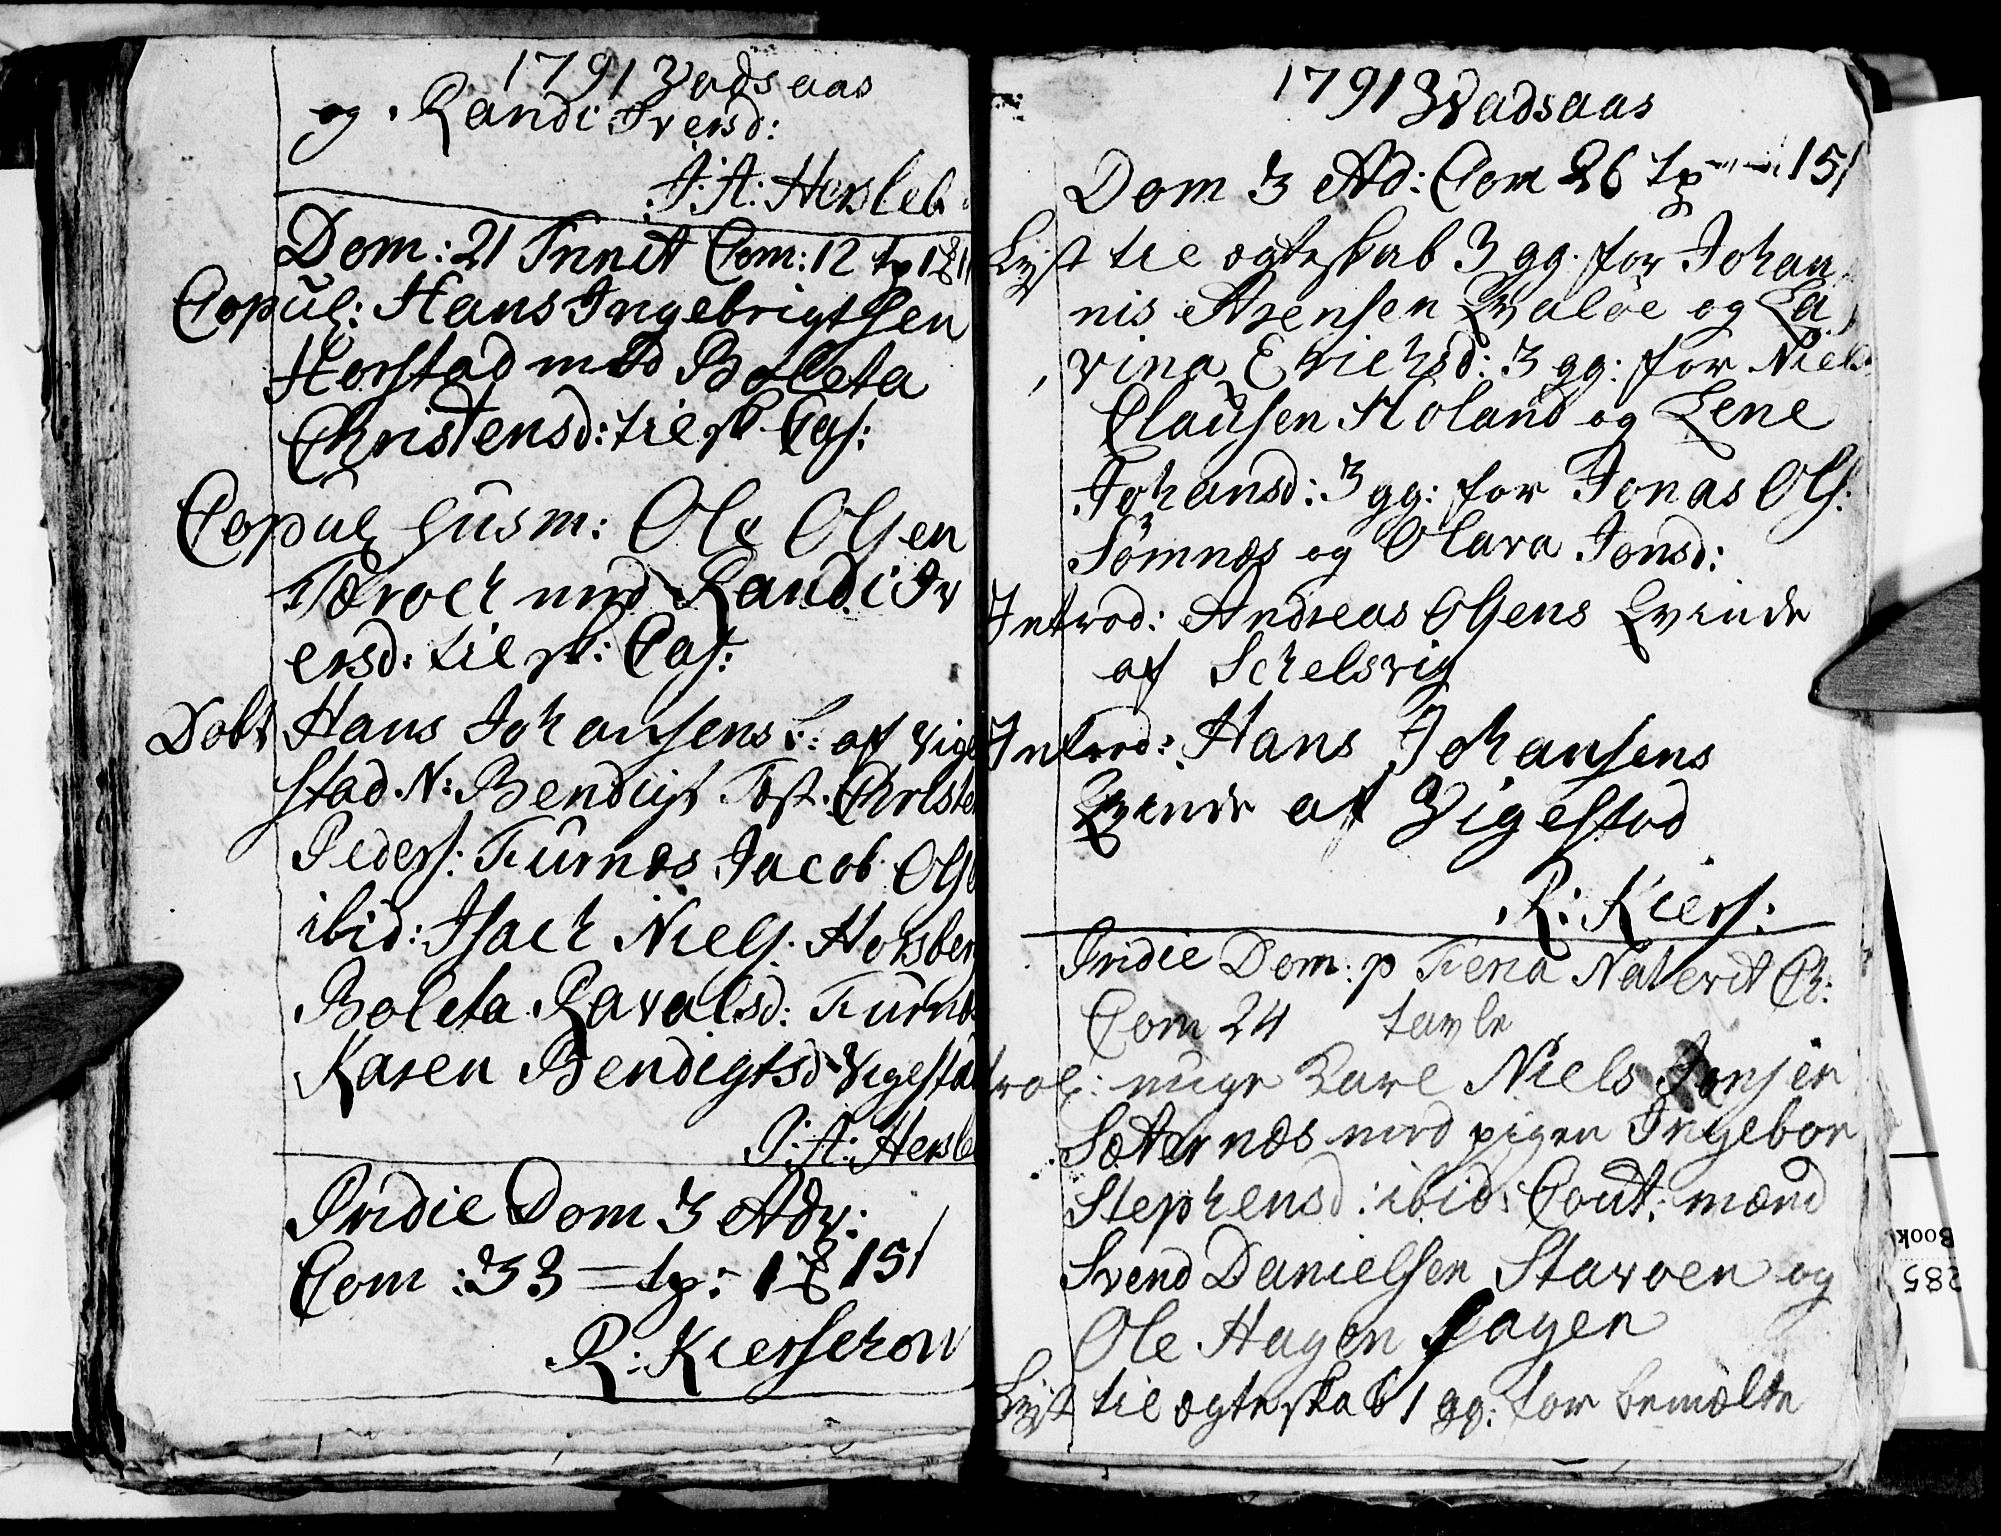 1791 Vadsaas
og Randi Iversd:
J: A: Hersleb
Dom: 21 Trinit Com: 12 tp 1
Copul: Hans Ingebrigtsen
Horstad med Boleta
Christensd: til sk. Cas:
Copul husm: Ole Olsen
Tæroch med Randi Iv
ersd: til sk: Cas:
Döbt Hans Johansens b: af Vige
stad N: Bendigt Test: Christen
Peders: Turnæs Jacob Ols
ibid: Isach Niels: Horsberg
Boleta Ravalsd: Turnæs
Karen Bendigtsd Vigestad
J: A: Hersle
Pridie Dom 3 Adv:
Com: 33 = tp: 1 15
R: Kierschow
1791 Vadsaas
Dom 3 Ad: Com 26 tp 15
Lyst til ægteskab 3 gg: for Johan
nis Arensen Qvaløe og La
vina Erichsd: 3 gg: for Niels
Clausen Holand og Lene
Johansd: 3 gg: for Jonas Ols:
Sömnæs og Olava Jonsd:
Introd: Andreas Olsens Qvinde
af Schelsvig
Introd: Hans Johansens
Qvinde af Vigestad
R: Kiers:
Pridie Dom: p Feria Nativit Ch:
Com 24 tavle
trol: unge Karl Niels Jonsen
Sæternæs med pigen Ingebor
Stephensd: ibid: Cout: mænd
Svend Danielsen Stavoen og
Ole Hagen Hagen
Lyst til ægteskab 1 gg: for bemælte
Book
285